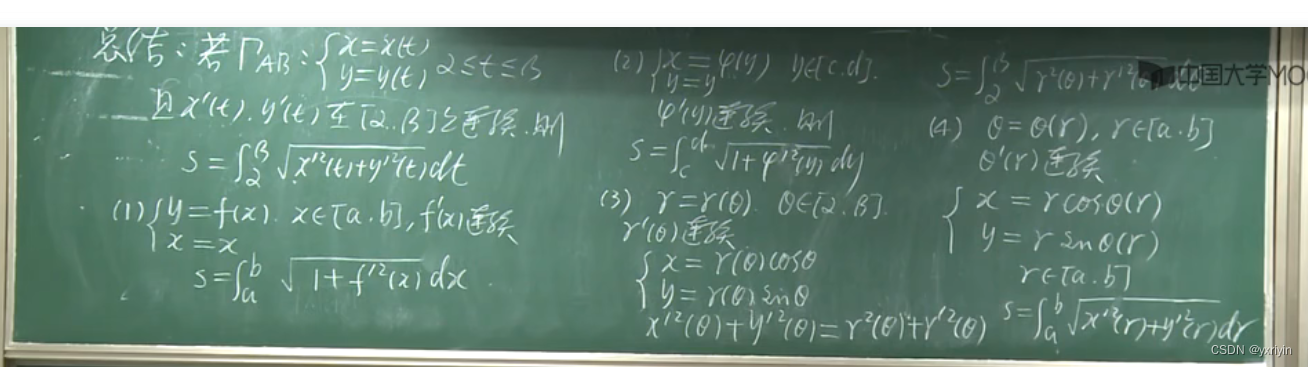 总结:若Γ_AB:{x=x(t) y=y(t) α≤t≤β
且x'(t).y'(t)在[α.β]上连续.则
S=∫_α^β √(x'²(t)+y'²(t)) dt
(1) {y=f(x). x∈[a.b], f'(x)连续
x=x
S=∫_a^b √(1+f'²(x)) dx
(2) {x=φ(y) y∈[c.d].
y=y
φ'(y)连续.则
S=∫_c^d √(1+φ'²(y)) dy
(3) r=r(θ). θ∈[α.β].
r'(θ)连续
{x=r(θ)cosθ
y=r(θ)sinθ
x'²(θ)+y'²(θ)=r²(θ)+r'²(θ)
S=∫_α^β √(r²(θ)+r'²(θ)) dθ
(4) θ=θ(r), r∈[a.b]
θ'(r)连续
{x=rcosθ(r)
y=rsinθ(r)
r∈[a.b]
S=∫_a^b √(x'²(r)+y'²(r)) dr
中国大学MO
CSDN @yxriyin